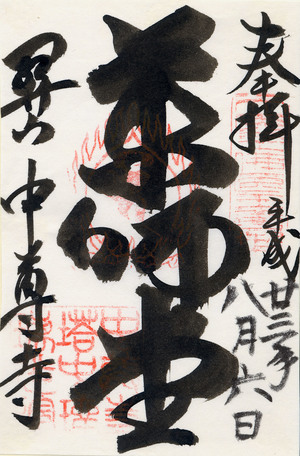 奉拝
平成廿三年
八月六日
薬師堂
関山
中尊寺